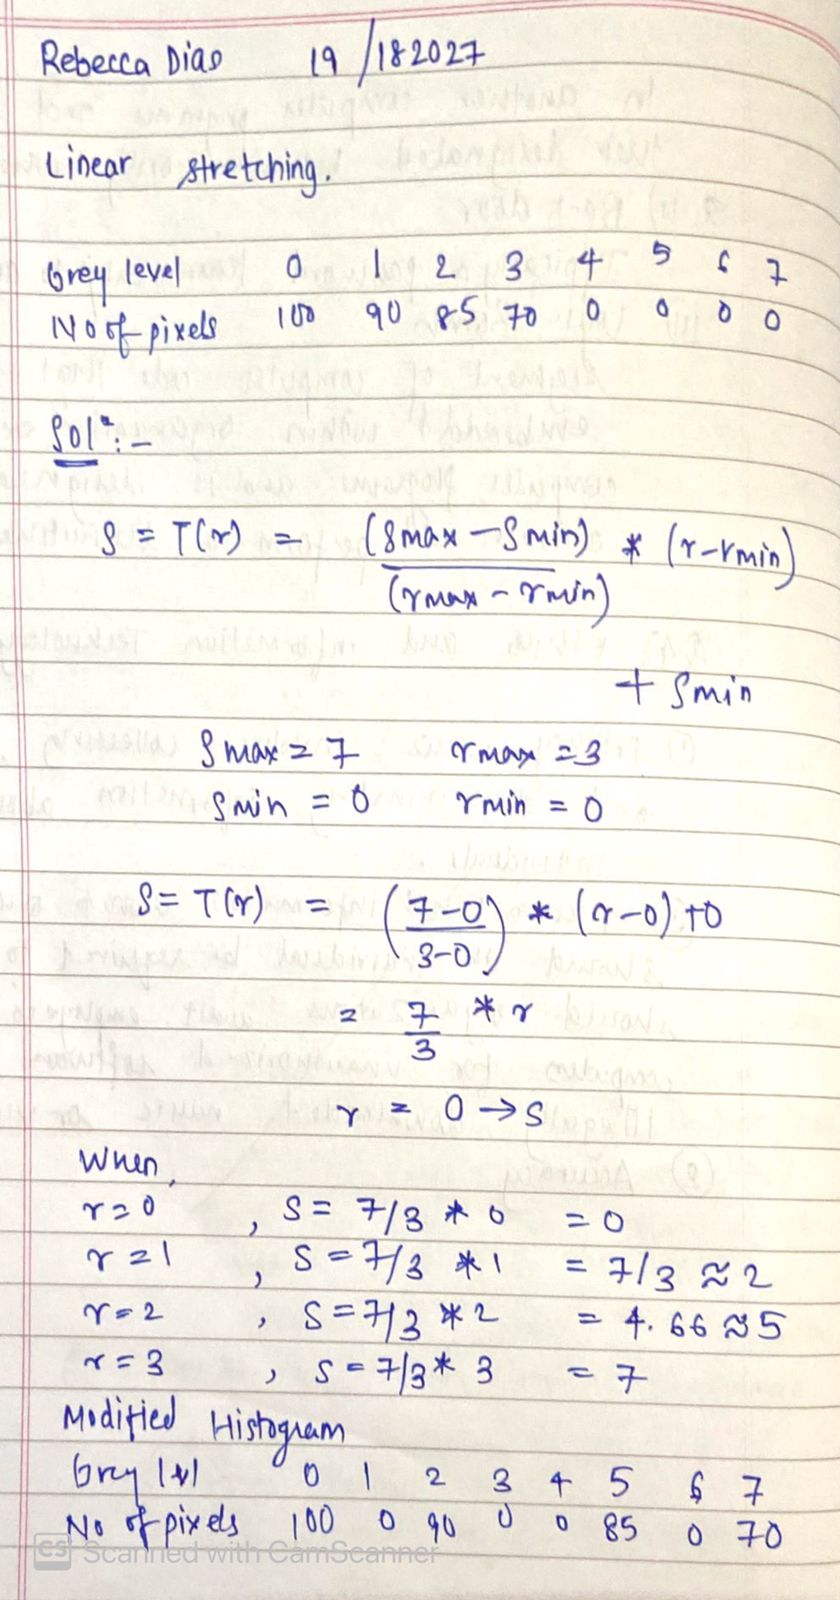 Rebecca Dias 19/182027
Linear stretching.
Grey level 0 1 2 3 4 5 6 7
No of pixels 100 90 85 70 0 0 0 0
Solⁿ:-
S = T(r) = (Smax - Smin) / (rmax - rmin) * (r-rmin)
+ Smin
Smax = 7 rmax = 3
Smin = 0 rmin = 0
S = T(r) = (7-0 / 3-0) * (r-0) +0
= 7/3 * r
r = 0 → S
When,
r=0 , S = 7/3 * 0 = 0
r=1 , S = 7/3 *1 = 7/3 ≈ 2
r=2 , S=7/3 *2 = 4.66 ≈5
r=3 , S=7/3* 3 = 7
Modified Histogram
Grey lvl 0 1 2 3 4 5 6 7
No of pixels 100 0 90 0 0 85 0 70
CS Scanned with CamScanner